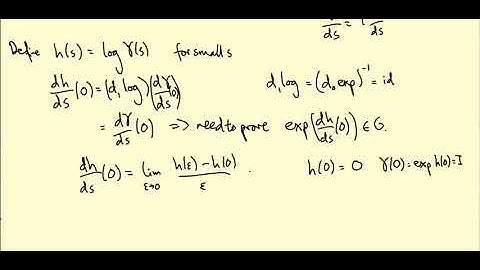 Define h(s) = log γ(s) for small s
dh/ds (0) = (d₁ log)(dγ/ds (0)) d₁ log = (d₀ exp)⁻¹ = id
= dγ/ds (0) => need to prove exp(dh/ds (0)) ∈ G.
dh/ds (0) = lim ε→0 h(ε) - h(0) / ε . h(0) = 0 γ(0) = exp h(0) = I